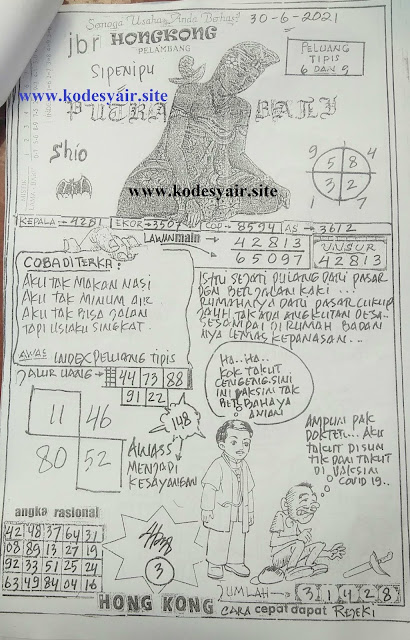 Semoga Usaha Anda Berhasil
30-6-2021
jbr HONGKONG
PELAMBANG
SIPENIPU
PELUANG
TIPIS
6 DAN 9
www.kodesyair.site
PUTRA BALI
Shio
www.kodesyair.site
9 5 8 4
1 3 2 7
KEPALA→4251 EKOR→3507 COP→8594 AS→3612
LAWAN main
42813
65097
UNSUR
42813
COBA DITERKA:
AKU TAK MAKAN NASI
AKU TAK MINUM AIR
AKU TAK BISA JALAN
TAPI USIAKU SINGKAT.
ISTRI SEJATI PULANG DARI PASAR
DGN BERJALAN KAKI...
RUMAHNYA DARI PASAR CUKUP
JAUH TAK ADA ANGKUTAN DESA..
SESAMPAI DI RUMAH BADAN
NYA LEMAS KEPANASAN...
AWAS INDEX PELUANG TIPIS
JALUR UANG→ 44 73 88
91 22
HA..HA..
KOK TAKUT
CENGENG. SINI
INI VAKSIN TAK
BERBAHAYA
AMAN
11 46
80 52
148
AWASS
MENJADI
KESAYANGAN
AMPUN PAK
DOKTER... AKU
TAKUT DISUN
TIK DAN TAKUT
DI VAKSIN
COVID 19..
angka rasional
42 48 37 64 31
08 89 13 27 19
92 33 51 25 24
63 49 84 04 16
3
JUMLAH→ 3 1 4 2 8
HONG KONG CARA cepat dapat REJEKI